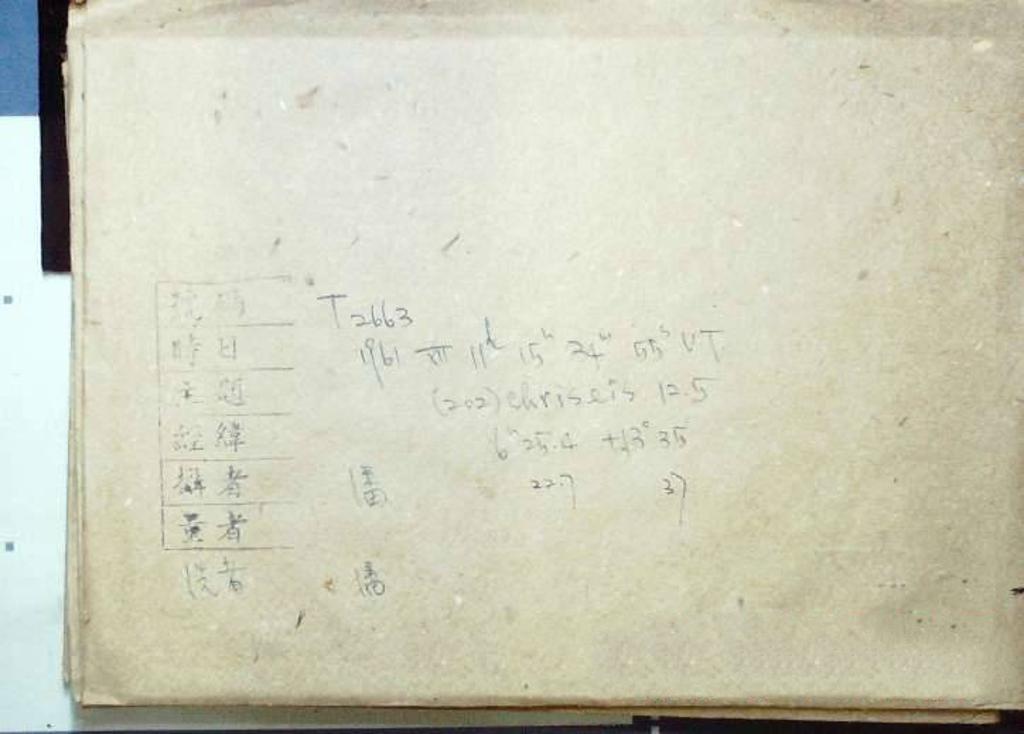 號碼 T2663
時日 1961 XII 11d 15h 24m 55s UT
主題 (202) chriseis 12.5
經緯 6h 25.4 +13° 35
攝者 潘 22.7 37
量者
洗者 潘